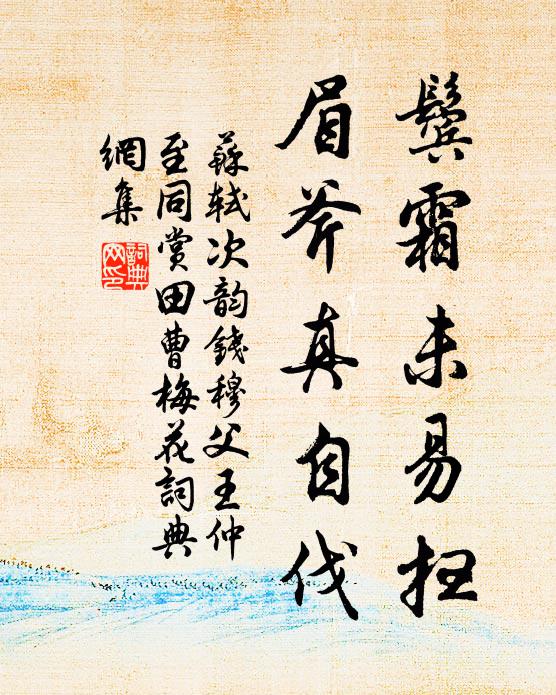 鬓霜未易扫
眉斧真自伐
蘇轼次韵錢穆父王仲
至同赏田曹梅花詞典
網集
詞典
网印